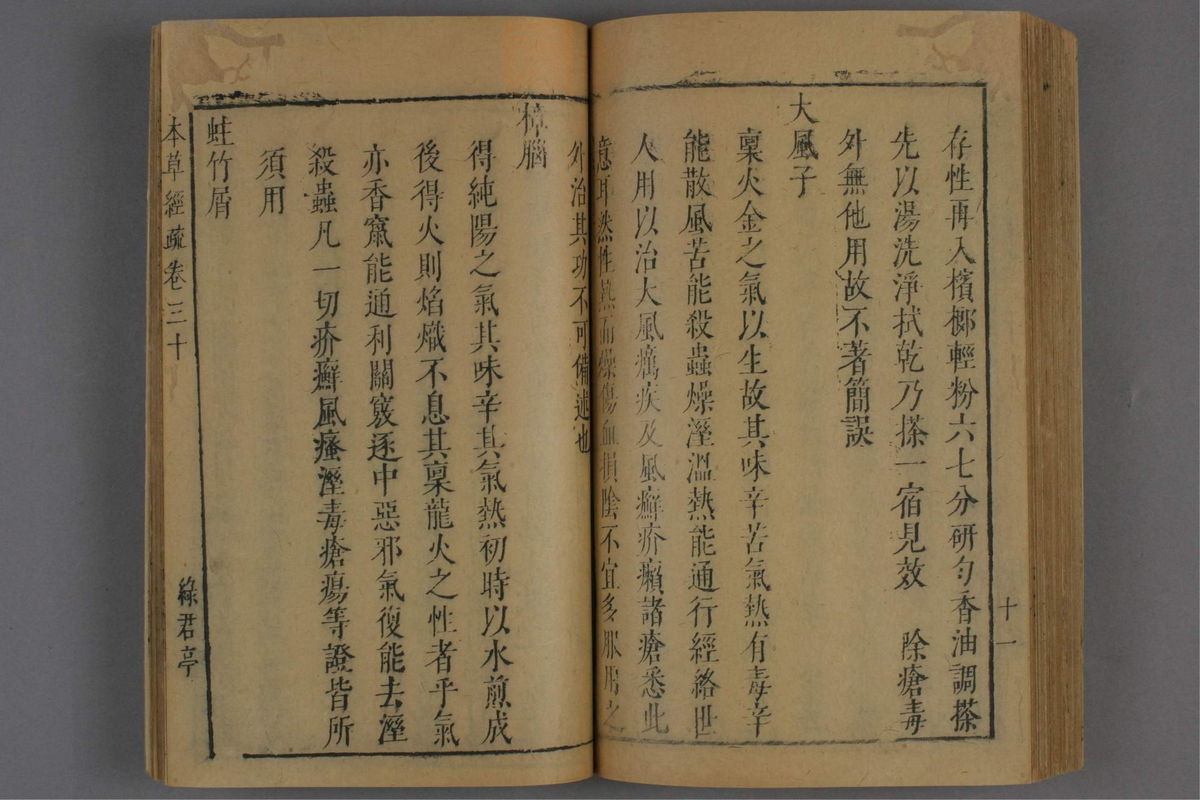 十一
存性再入檳榔輕粉六七分研勻香油調搽
先以湯洗淨拭乾乃搽一宿見效　除瘡毒
外無他用故不著簡誤
大風子
稟火金之氣以生故其味辛苦氣熱有毒辛
能散風苦能殺蟲燥溼溫熱能通行經絡世
人用以治大風癘疾及風癬疥癩諸瘡悉此
意耳然性熱而燥傷血損陰不宜多服用之
外治其功不可備述也
樟腦
得純陽之氣其味辛其氣熱初時以水煎成
後得火則焰熾不息其稟龍火之性者乎氣
亦香竄能通利關竅逐中惡邪氣復能去溼
殺蟲凡一切疥癬風瘙溼毒瘡瘍等證皆所
須用
蛀竹屑
本草經疏卷三十
綠君亭